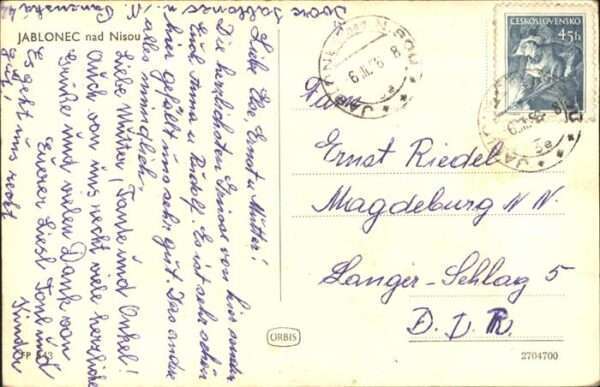 JABLONEC nad Nisou
Liebe Else, Ernst u. Mutter!
Die herzlichsten Grüsse von hier senden
Euch Anna u. Rudolf. Es ist sehr schön
hier gefällt uns sehr gut. Das andere
alles mündlich.
Liebe Mutter, Tante und Onkel!
Auch von uns recht viele herzliche
Grüße und vielen Dank von
Eurer Liesl Toni und
Kinder
Es geht uns recht
gut!
Jablonec n./N.
ČESKOSLOVENSKO
45h
Fam
Ernst Riedel
Magdeburg N N.
Langer-Schlag 5
D. D. R.
ORBIS
2704700